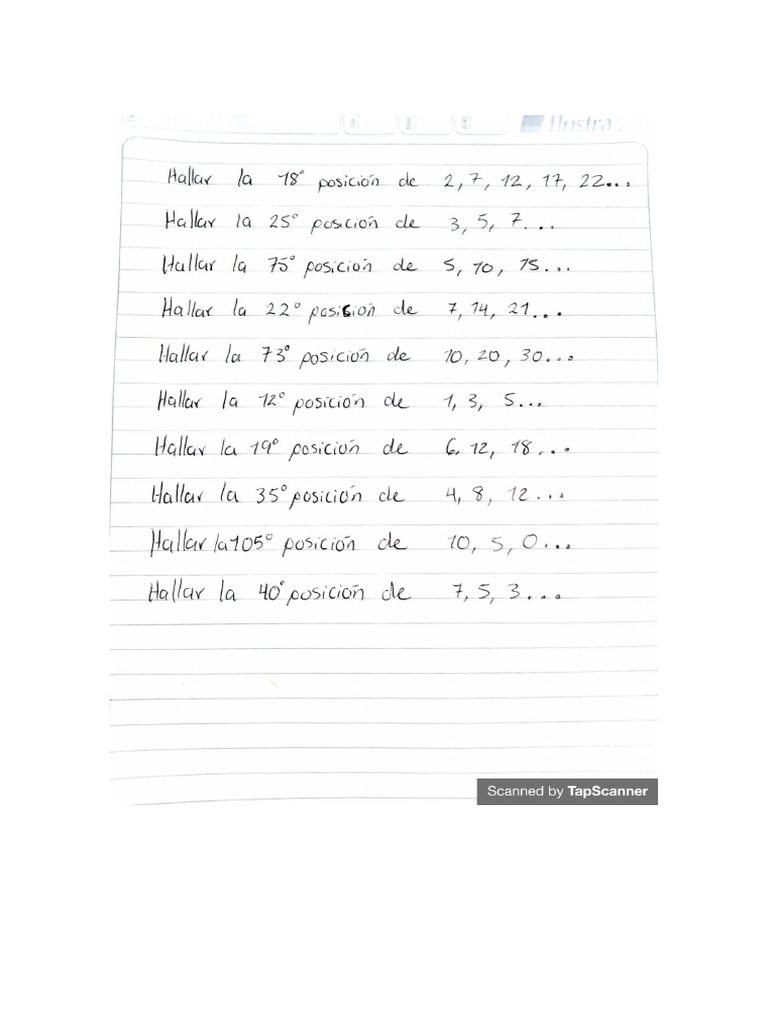 Ilustra
Hallar la 18° posición de 2, 7, 12, 17, 22...
Hallar la 25° posición de 3, 5, 7...
Hallar la 75° posición de 5, 10, 15...
Hallar la 22° posición de 7, 14, 21...
Hallar la 73° posición de 10, 20, 30...
Hallar la 12° posición de 1, 3, 5...
Hallar la 19° posición de 6, 12, 18...
Hallar la 35° posición de 4, 8, 12...
Hallar la 105° posición de 10, 5, 0...
Hallar la 40° posición de 7, 5, 3...
Scanned by TapScanner